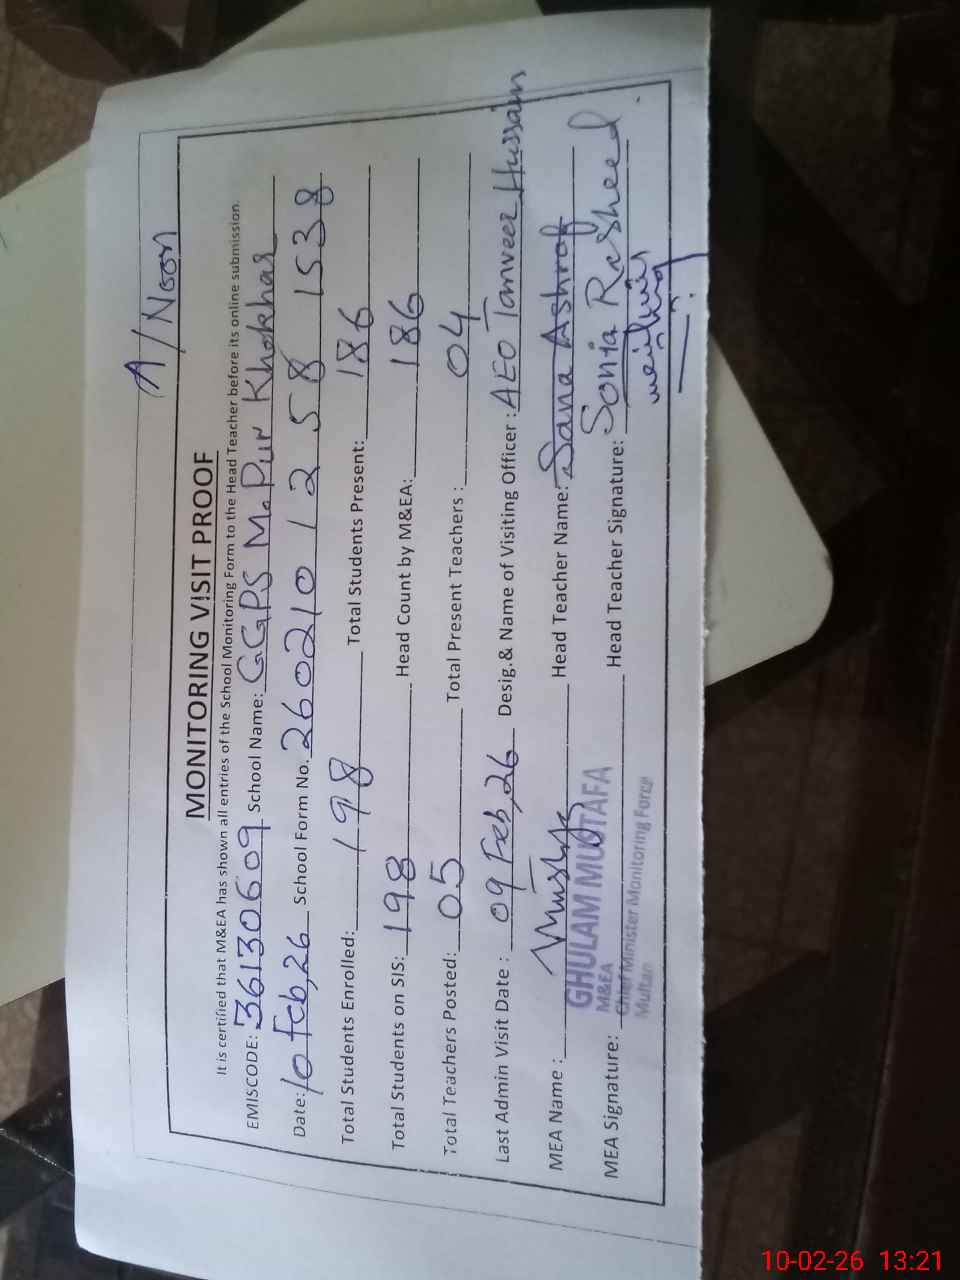 A/Noon
MONITORING VISIT PROOF
It is certified that M&EA has shown all entries of the School Monitoring Form to the Head Teacher before its online submission.
EMISCODE: 36130609 School Name: GGPS M.Pur Khokhar
Date: 10 Feb,26 School Form No. 26021012581538
Total Students Enrolled: 198 Total Students Present: 186
Total Students on SIS: 198 Head Count by M&EA: 186
Total Teachers Posted: 05 Total Present Teachers : 04
Last Admin Visit Date : 09 Feb,26 Desig.& Name of Visiting Officer : AEO Tanveer Hussain
MEA Name : Mustafa Head Teacher Name: Sana Ashraf
MEA Signature: Head Teacher Signature: Sonia Rasheed
GHULAM MUSTAFA
M&EA
Chief Minister Monitoring Force
Multan
10-02-26 13:21